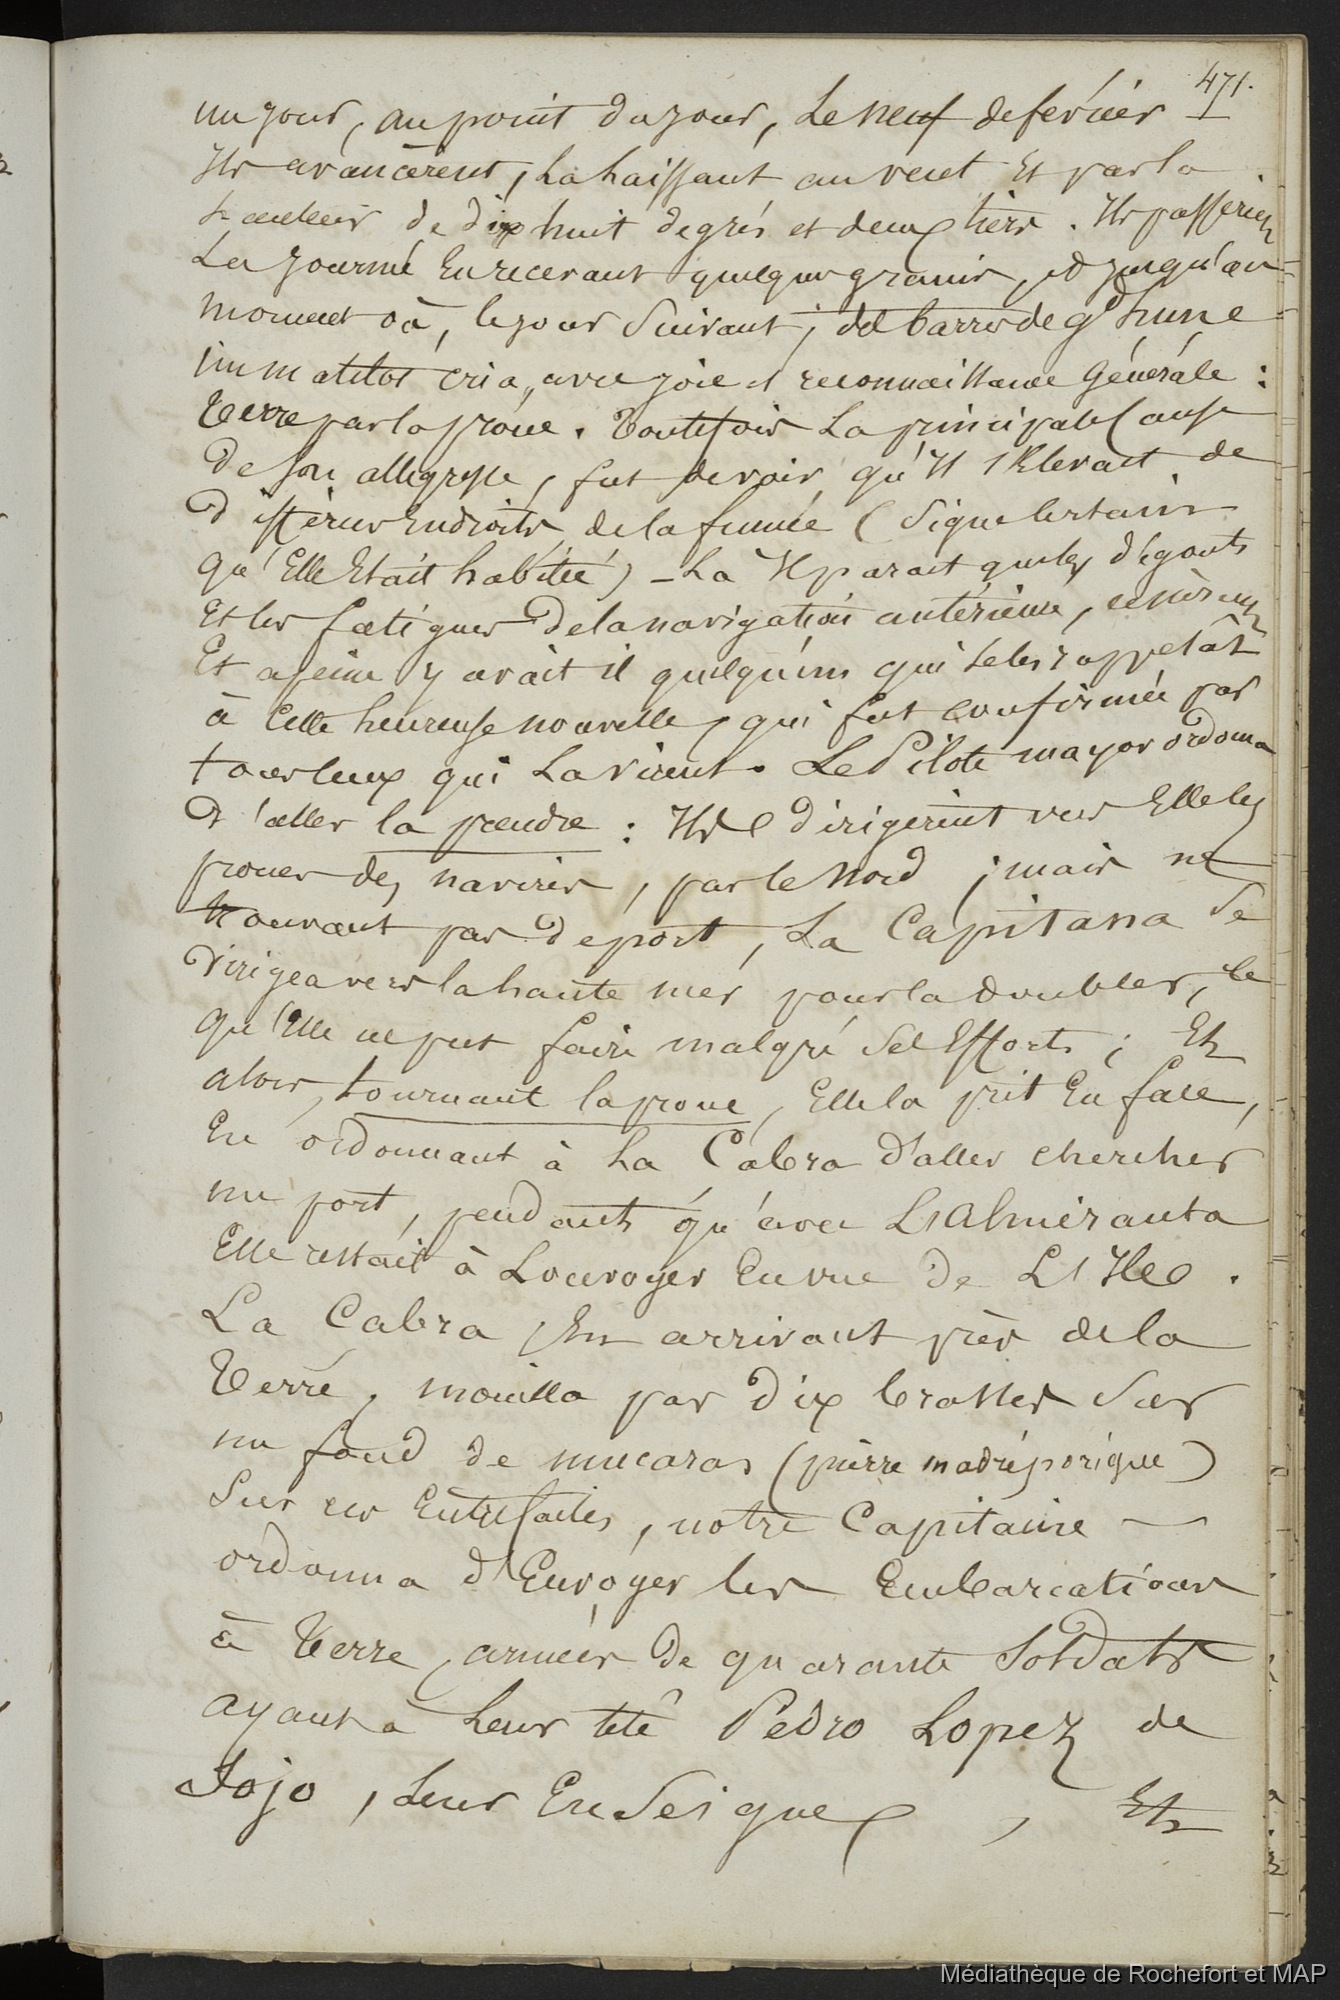 471.
un jour, au point du jour, le neuf de fevrier
Ils avancèrent, la laissant au vent et par la
hauteur de dix huit degrés et deux tiers. Ils passerent
La journé En recevant quelques grains, et jusqu'au
moment où, le jour Suivant, des barres de gd hune
un matelot cria, avec joie et reconnaissance Générale :
Terre par la proue. Toutefois La principale Cause
De son allegresse, fut de voir qu'Il s'Elevait de
differens Endroits de la fumée (Signe Certain
qu'Elle Etait habitée) _ Là Il parait que les dégouts
Et les fatigues De la navigation antérieure, cessèrent
Et a peine y avait il quelqu'uns qui se les rappelât
à Cette heureuse nouvelle, qui fut confirmée par
tous Ceux qui La virent. Le Pilote mayor ordonna
D'aller la prendre : Ils Dirigerent vers Elle les
proues des navires, par le Nord ; mais ne
trouvant pas De port, La Capitana Se
Dirigea vers la haute mer pour la doubler, Ce
qu'Elle ne put faire malgré Ses Efforts ; Et
alors, tournant la proue, Elle la prit En face,
En ordonnant à La Cabra D'aller chercher
un port, pendant qu'avec L'Almiranta
Elle restait à Louvoyer En vue de L'Ile.
La Cabra, En arrivant près de la
Terre, mouilla par Dix brasses Sur
un fond de mucaras (pierre madréporique)
Sur ces Entrefaites, notre Capitaine —
ordonna d'Envoyer les Embarcations
à Terre, armées De quarante Soldats
ayant à Leur tête Pedro Lopez de
Sojo, Leur Enseigne, Et
Médiathèque de Rochefort et MAP